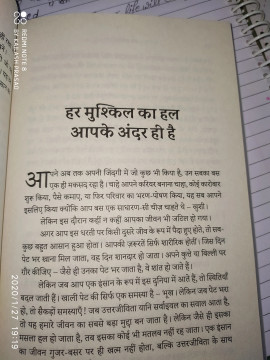 हर मुश्किल का हल
आपके अंदर ही है
आपने अब तक अपनी जिंदगी में जो कुछ भी किया है, उन सबका बस
एक ही मकसद रहा है। चाहे आपने करियर बनाना चाहा, कोई कारोबार
शुरू किया, पैसे कमाए, या फिर परिवार का भरण-पोषण किया, यह सब आपने
इसलिए किया क्योंकि आप बस एक साधारण-सी चीज़ चाहते थे – खुशी।
लेकिन इस दौरान कहीं न कहीं आपका जीवन भी जटिल हो गया।
अगर आप इस धरती पर किसी दूसरे जीव के रूप में पैदा हुए होते, तो सब-
कुछ बहुत आसान हुआ होता। आपकी जरूरतें सिर्फ शारीरिक होतीं। जिस दिन
पेट भर खाना मिल जाता, वह दिन शानदार हो जाता। अपने कुत्ते या बिल्ली पर
गौर कीजिए – जैसे ही उनका पेट भर जाता है, वे शांत हो जाते हैं।
लेकिन जब आप एक इंसान के रूप में इस दुनिया में आते हैं, तो स्थितियाँ
बदल जाती हैं। खाली पेट की सिर्फ एक समस्या है – भूख। लेकिन जब पेट भरा
हो, तो सैकड़ों समस्याएँ! जब उत्तरजीविता यानि सर्वाइवल का सवाल आता है,
तो यह हमारे जीवन का सबसे बड़ा मुद्दा बन जाता है। लेकिन जैसे ही इसका
समाधान हो जाता है, तब इसका कोई भी मतलब नहीं रह जाता। एक इंसान
का जीवन गुज़र-बसर पर ही खत्म नहीं होता, बल्कि उत्तरजीविता के साथ
REDMI NOTE 8
2020/11/27 19:19